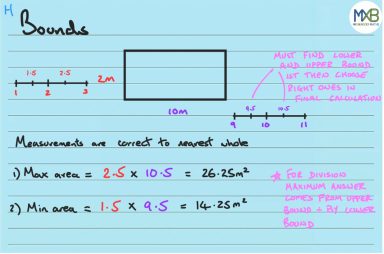 H
Bounds
MXB
1.5 2.5
1 2 3
2m
10m
MUST FIND LOWER
AND UPPER BOUND
1ST THEN CHOOSE
RIGHT ONES IN
FINAL CALCULATION
9.5 10.5
9 10 11
Measurements are correct to nearest whole
1) Max area = 2.5 x 10.5 = 26.25m²
2) Min area = 1.5 x 9.5 = 14.25m²
★ FOR DIVISION
MAXIMUM ANSWER
COMES FROM UPPER
BOUND ÷ BY LOWER
BOUND